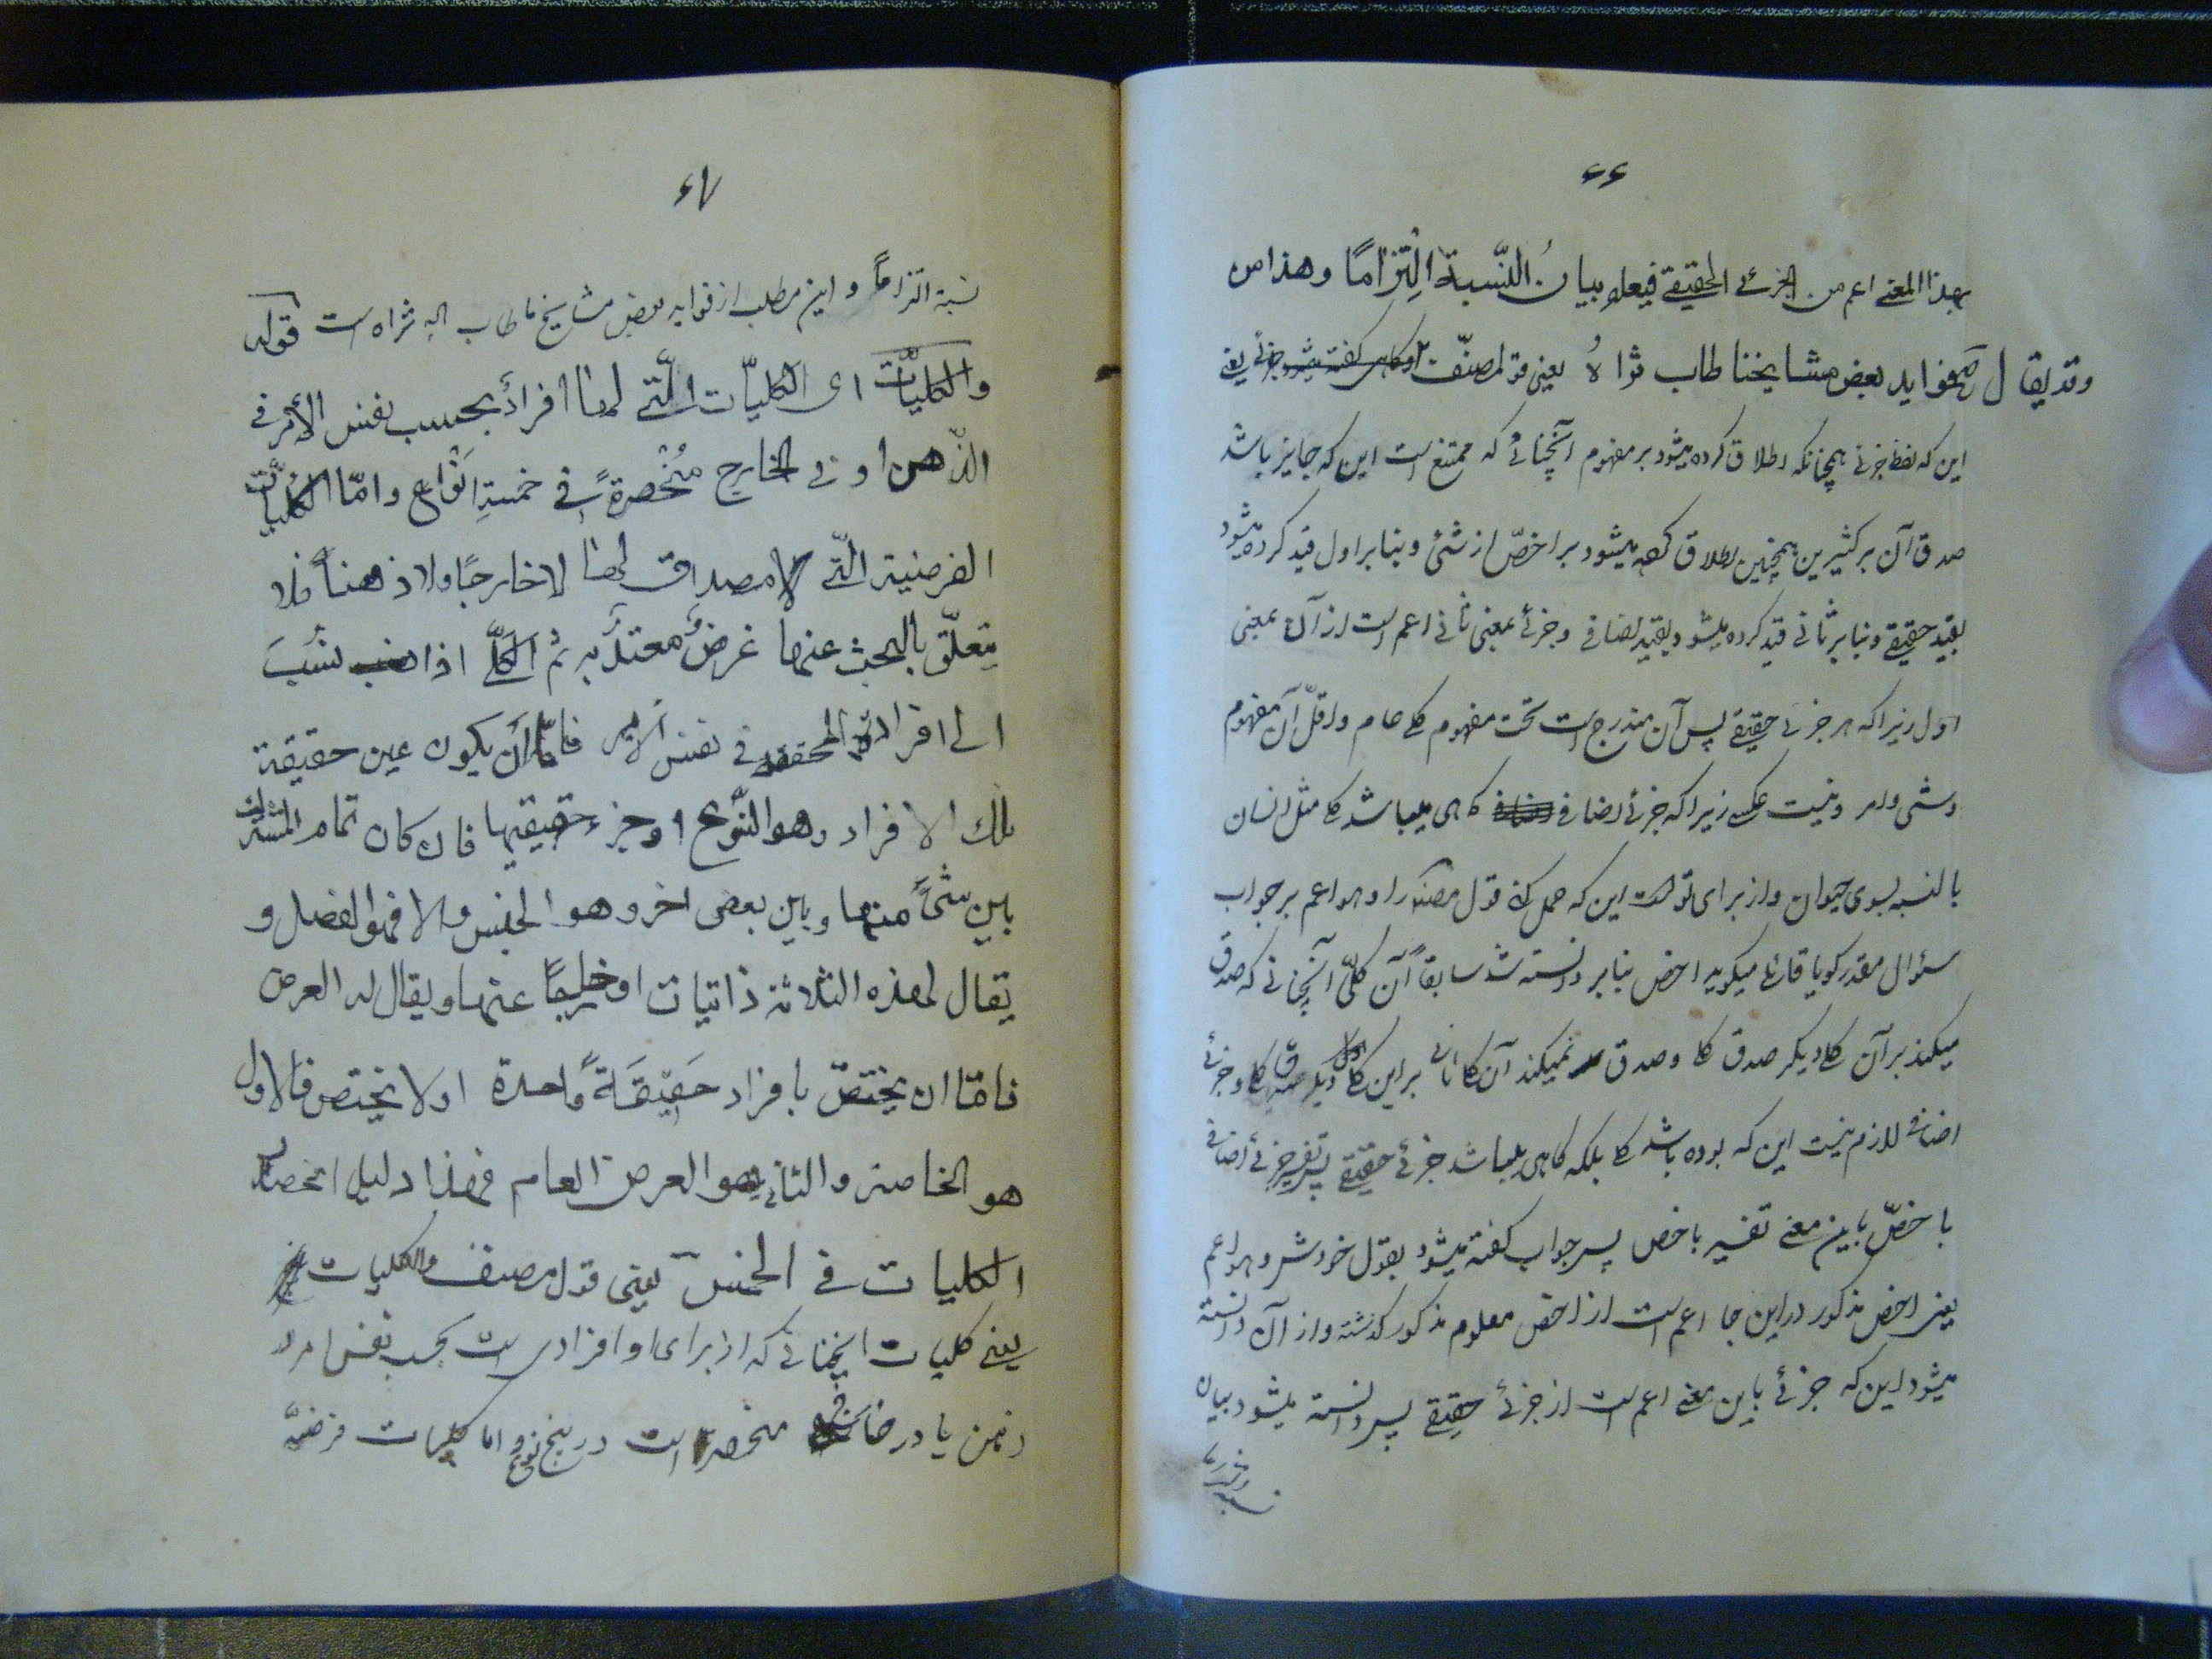 ۶۶
بهذا المعنى اعم من الجزئى الحقيقى فيعلم بيانُ النّسبة اِلْتِزامًا وهذا من
فوايد بعض مشايخنا طاب ثراهُ يعنى قول مصنّف وقد يقال
اين كه لفظ جزئى همچنانكه اطلاق كرده ميشود بر مفهوم آنچنانى كه ممتنع است اين كه جايز باشد
صدق آن بر كثيرين همچنين اطلاق كرده ميشود بر اخصّ از شئ و بنابر اول قيد كرده ميشود
بقيد حقيقى و بنابر ثانى قيد كرده ميشود بقيد اضافى و جزئى بمعنى ثانى اعم است از آن بمعنى
اول زيرا كه هر جزئى حقيقى پس آن مندرج است تحت مفهوم كلى عام و اقلّ آن مفهوم
و شى و امر و نيست عكس زيرا كه جزئى اضافى كاهى ميباشد كلى مثل انسان
بالنسبه بسوى حيوان و از براى تو است اين كه حمل كنى قول مصنف را و هو اعم بر جواب
سئوال مقدر كويا قائلى ميكويد اخص بنابر دانسته شد سابقاً آن كلّى آنچنانى كه صدق
ميكند بر آن كلى ديكر صدق كلى و صدق نميكند آن كلى ثانى بر اين كلى ديكر صدق كلى و جزئى
اضافى لازم نيست اين كه بوده باشد كلى بلكه كاهى ميباشد جزئى حقيقى پس تفسير جزئى اضافى
باخصّ باين معنى تفسير باخص پس جواب كفته ميشود بقول خودش و هو اعم
يعنى اخص مذكور در اين جا اعم است از اخص معلوم مذكور كذشته و از آن دانسته
ميشود اين كه جزئى باين معنى اعم است از جزئى حقيقى پس دانسته ميشود بيان
۶۷
نسبة التزاماً و اين مطلب از فوايد بعض مشايخ ما طاب الله ثراه است قوله
والكليّات اى الكليّات الّتى لها افرادٌ بحسب نفس الأمر فى
الذّهن او فى الخارج مُنْحصرةً فى خمسةِ انْواع وامّا الكليّات
الفرضية الّتى لا مصداق لها لا خارجًا ولا ذهناً فلا
يتعلّق بالبحث عنها غرضٌ معتدٌّ به ثم الكلّى اذا نُسِبَ
الى افراده المحققة فى نفس الأمر فامّا أن يكون عين حقيقة
تلك الافراد وهو النّوع او جزء حقيقتها فان كان تمام المشترك
بين شئٍ منها وبين بعض اخر وهو الجنس والا فهو الفصل و
يقال لهذه الثلاثة ذاتيات او خارجًا عنها ويقال له العرض
فامّا ان يختصّ بافراد حَقيقَةً واحدة اولا يختص فالاول
هو الخاصة والثانى هو العرض العام فهذا دليل انحصار
الكليات فى الخمس يعنى قول مصنف والكليات خمس
يعنى كليات انچنانى كه از براى او افرادى است بحسب نفس امر در
ذهن يا در خارج منحصر است در پنج نوع و اما كليات فرضيّه